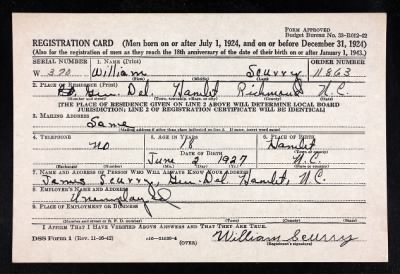 FORM APPROVED
Budget Bureau No. 33-R012-42
REGISTRATION CARD (Men born on or after July 1, 1924, and on or before December 31, 1924)
(Also for the registration of men as they reach the 18th anniversary of the date of their birth on or after January 1, 1943.)
SERIAL NUMBER 1. NAME (Print) ORDER NUMBER
W 370 William Scurry 11863
(First) (Middle) (Last)
2. PLACE OF RESIDENCE (Print)
Gen. Del. Hamlet Richmond N.C.
(Number and street) (Town, township, village, or city) (County) (State)
[THE PLACE OF RESIDENCE GIVEN ON LINE 2 ABOVE WILL DETERMINE LOCAL BOARD
JURISDICTION; LINE 2 OF REGISTRATION CERTIFICATE WILL BE IDENTICAL]
3. MAILING ADDRESS
Same
[Mailing address if other than place indicated on line 2. If same, insert word same]
4. TELEPHONE 5. AGE IN YEARS 6. PLACE OF BIRTH
no 18 Hamlet
DATE OF BIRTH (Town or county)
June 2 1927 N.C.
(Exchange) (Number) (Mo.) (Day) (Yr.) (State or country)
7. NAME AND ADDRESS OF PERSON WHO WILL ALWAYS KNOW YOUR ADDRESS
James Scurry, Gen. Del. Hamlet, N.C.
8. EMPLOYER'S NAME AND ADDRESS
Unemployed
9. PLACE OF EMPLOYMENT OR BUSINESS
(Number and street or R. F. D. number) (Town) (County) (State)
I AFFIRM THAT I HAVE VERIFIED ABOVE ANSWERS AND THAT THEY ARE TRUE.
DSS Form 1 (Rev. 11-16-42) (OVER) William Scurry
(Registrant's signature)